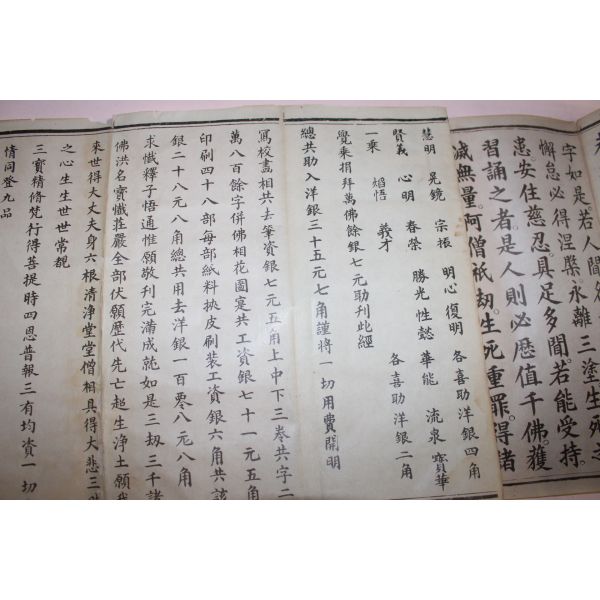 字如是若人聞
懈怠必得涅槃。永離三塗生死
恚。安住慈忍。具足多聞。若能受持。
習誦之者。是人則必歷值千佛。獲
滅無量。阿僧祇劫。生死重罪。得諸
慧明 晃鏡 宗振 明心 復明 各喜助洋銀四角
賢義 心明 春榮 勝光 性懿 華能 流泉 寶華
一乘 焰悟 義才 各喜助洋銀二角
覺乘捐拜萬佛餘銀七元助刊此經
總共助入洋銀三十五元七角謹將一切用費開明
寫校畫相共去筆資銀七元五角上中下三卷共字二
萬八百餘字併佛相花圖寔共工資銀七十一元五角
印刷四十八部每部紙料挾皮刷裝工資銀六角共該
銀二十八元八角總共用去洋銀一百零八元八角
求懺釋子悟通惟願敬刊完滿成就如是三劫三千諸
佛洪名寶懺莊嚴全部伏願歷代先亡超生淨土願我
來世得大丈夫身六根清淨堂堂僧相具得大悲三
之心生生世世常覩
三寶精修梵行得菩提時四恩普報三有均資一切
情同登九品